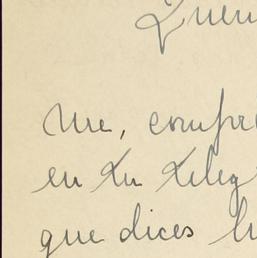 Quer
Me, compre
en tu teleg
que dices